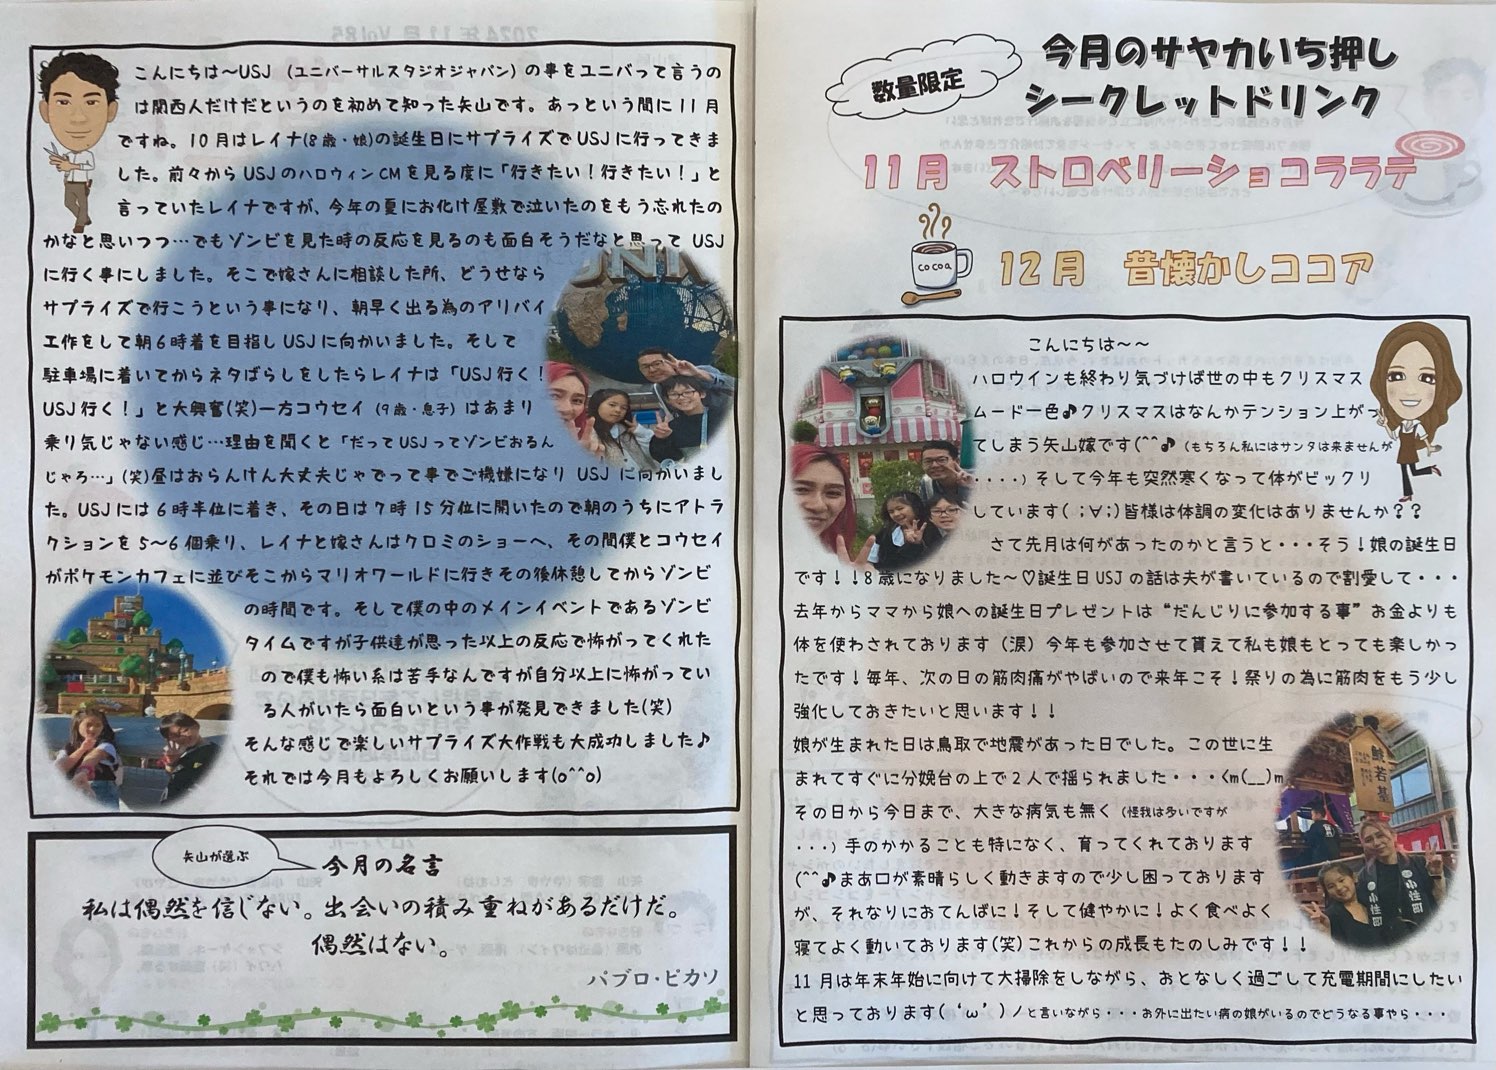 こんにちは～USJ （ユニバーサルスタジオジャパン）の事をユニバって言うの
は関西人だけだというのを初めて知った矢山です。あっという間に11月
ですね。10月はレイナ(8歳・娘)の誕生日にサプライズでUSJに行ってきま
した。前々からUSJのハロウィンCMを見る度に「行きたい！行きたい！」と
言っていたレイナですが、今年の夏にお化け屋敷で泣いたのをもう忘れたの
かなと思いつつ…でもゾンビを見た時の反応を見るのも面白そうだなと思って USJ
に行く事にしました。そこで嫁さんに相談した所、どうせなら
サプライズで行こうという事になり、朝早く出る為のアリバイ
工作をして朝6時着を目指しUSJに向かいました。そして
駐車場に着いてからネタばらしをしたらレイナは「USJ行く！
USJ行く！」と大興奮(笑)一方コウセイ（9歳・息子）はあまり
乗り気じゃない感じ…理由を聞くと「だってUSJってゾンビおるん
じゃろ…」(笑)昼はおらんけん大丈夫じゃでって事でご機嫌になり USJ に向かいまし
た。USJには6時半位に着き、その日は7時15分位に開いたので朝のうちにアトラ
クションを5～6個乗り、レイナと嫁さんはクロミのショーへ、その間僕とコウセイ
がポケモンカフェに並びそこからマリオワールドに行きその後休憩してからゾンビ
の時間です。そして僕の中のメインイベントであるゾンビ
タイムですが子供達が思った以上の反応で怖がってくれた
ので僕も怖い系は苦手なんですが自分以上に怖がってい
る人がいたら面白いという事が発見できました(笑)
そんな感じで楽しいサプライズ大作戦も大成功しました♪
それでは今月もよろしくお願いします(o^^o)
矢山が選ぶ
今月の名言
私は偶然を信じない。出会いの積み重ねがあるだけだ。
偶然はない。
パブロ・ピカソ
数量限定
今月のサヤカいち押し
シークレットドリンク
11月　ストロベリーショコララテ
cocoa
12月　昔懐かしココア
こんにちは～～
ハロウインも終わり気づけば世の中もクリスマス
ムード一色♪クリスマスはなんかテンション上がっ
てしまう矢山嫁です(^^♪（もちろん私にはサンタは来ませんが
・・・・）そして今年も突然寒くなって体がビックリ
しています( ;∀;)皆様は体調の変化はありませんか？？
さて先月は何があったのかと言うと・・・そう！娘の誕生日
です！！8歳になりました～♡誕生日USJの話は夫が書いているので割愛して・・・
去年からママから娘への誕生日プレゼントは“だんじりに参加する事”お金よりも
体を使わされております（涙）今年も参加させて貰えて私も娘もとっても楽しかっ
たです！毎年、次の日の筋肉痛がやばいので来年こそ！祭りの為に筋肉をもう少し
強化しておきたいと思います！！
娘が生まれた日は鳥取で地震があった日でした。この世に生
まれてすぐに分娩台の上で2人で揺られました・・・<m(__)m
その日から今日まで、大きな病気も無く（怪我は多いですが
・・・）手のかかることも特になく、育ってくれております
(^^♪まあ口が素晴らしく動きますので少し困っております
が、それなりにおてんばに！そして健やかに！よく食べよく
寝てよく動いております(笑)これからの成長もたのしみです！！
11月は年末年始に向けて大掃除をしながら、おとなしく過ごして充電期間にしたい
と思っております( ‘ω’ )ノと言いながら・・・お外に出たい病の娘がいるのでどうなる事やら・・・
小性町
小性町